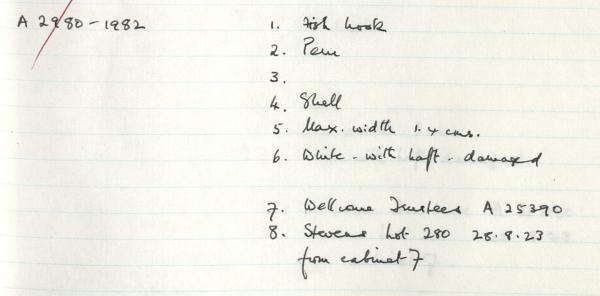 A 2980-1982 1. Fish hook
2. Peru
3.
4. Shell
5. Max. width 1.4 cms.
6. White - with haft - damaged
7. Wellcome Trustees A 25390
8. Stevens Lot 280 28.8.23
from cabinet 7